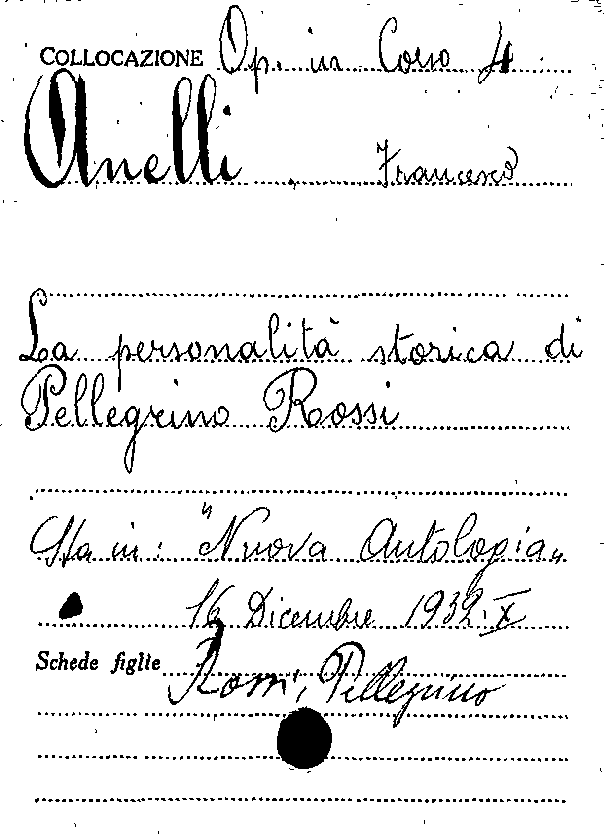 COLLOCAZIONE Op. in Corso 4
Anelli, Francesco
La personalità storica di
Pellegrino Rossi
Sta in: "Nuova Antologia„
16 Dicembre 1932. X
Schede figlie Rossi, Pellegrino